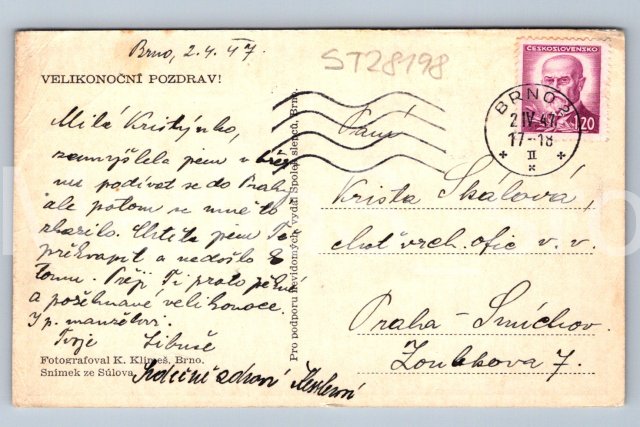 Brno, 2.4.47.
ST28198
VELIKONOČNÍ POZDRAV!
ČESKOSLOVENSKO
1.20
BRNO 2
2 IV 47
17-18
II
Milá Kristýnko,
zamýšlela jsem v
podívat se do Prahy
ale potom se mně to
zkazilo. Chtěla jsem Tě
překvapit a nedošlo k
tomu. Přeji Ti proto
a požehnané velikonoce.
I p. manželovi.
Tvoje Libuše
Srdečně zdraví
Fotografoval K. Klimeš, Brno.
Snímek ze Súlova.
Pro podporu nevidomých vydal Spolek slepců, Brno.
Paní
Krista Skálová,
choť vrch. ofic. v. v.
Praha - Smíchov.
Zoubkova 7.